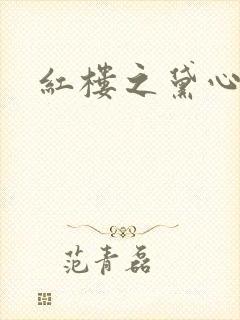 紅樓之黛心
范青磊